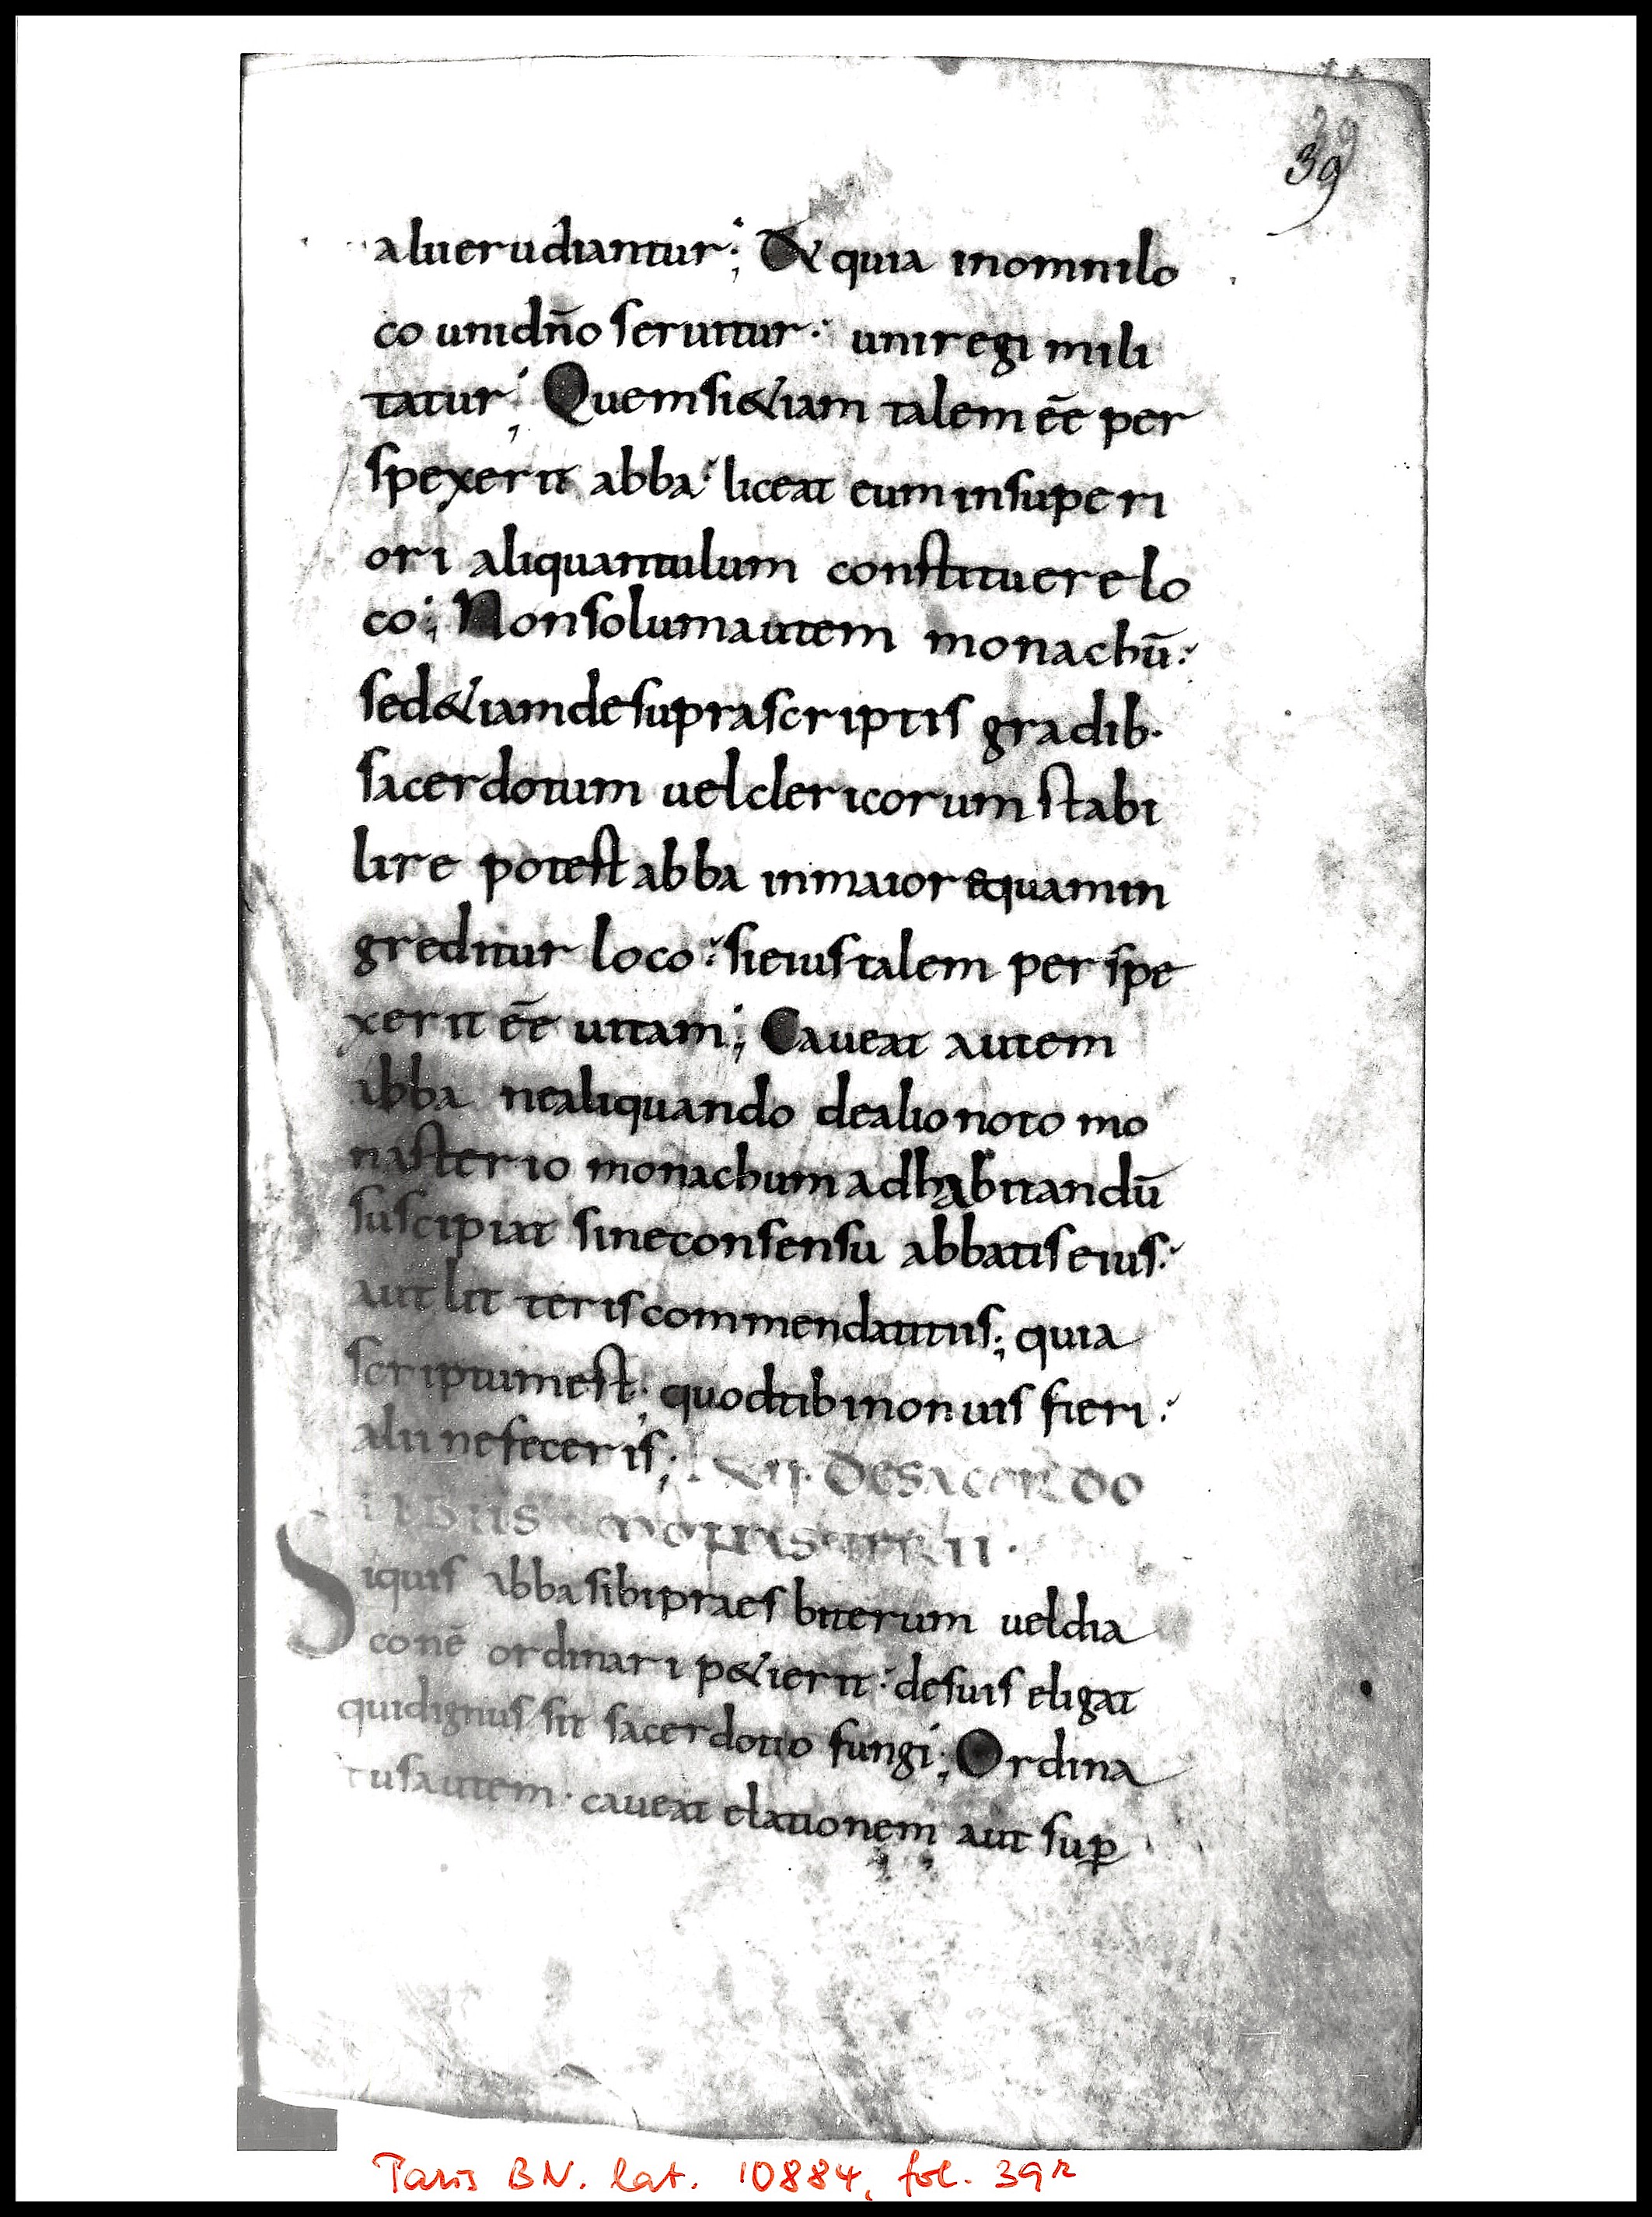 39
39
alii erudiantur; & quia in omni lo
co uni dn̄o seruitur· uni regi mili
tatur; Quem si &iam talem ēē per
spexerit abba· liceat eum in superi
ori aliquantulum constituere lo
co; Non solum autem monachū·
sed &iam de suprascriptis gradib·
sacerdotum uel clericorum stabi
lire potest abba in maiore quam in
greditur loco· si eius talem perspe
xerit ēē uitam; Caueat autem
abba ne aliquando de alio noto mo
nasterio monachum ad habitandū
suscipiat sine consensu abbatis eius·
aut litteris commendatitiis; quia
scriptum est; quod tibi non uis fieri·
alii ne feceris; LXII· DE SACERDO
TIBUS MONASTERII·
Si quis abba sibi praesbiterum uel dia
conē ordinari p&ierit· de suis eligat
qui dignus sit sacerdotio fungi; Ordina
tus autem· caueat elationem aut sup̲
Paris BN. lat. 10884, fol. 39r